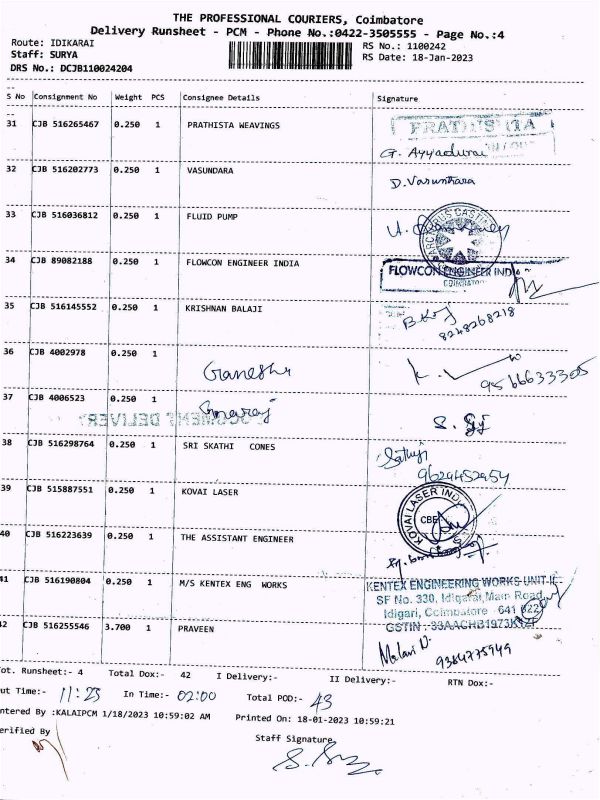 THE PROFESSIONAL COURIERS, Coimbatore
Delivery Runsheet - PCM - Phone No.:0422-3505555 - Page No.:4
Route: IDIKARAI
RS No.: 1100242
Staff: SURYA
RS Date: 18-Jan-2023
DRS No.: DCJB110024204
S No Consignment No Weight PCS Consignee Details Signature
31 CJB 516265467 0.250 1 PRATHISTA WEAVINGS
G. Ayyadurai
32 CJB 516202773 0.250 1 VASUNDARA D. Vasunthara
33 CJB 516036812 0.250 1 FLUID PUMP
34 CJB 89082188 0.250 1 FLOWCON ENGINEER INDIA FLOWCON ENGINEER INDIA
COIMBATORE
35 CJB 516145552 0.250 1 KRISHNAN BALAJI
8248268218
36 CJB 4002978 0.250 1 Ganesh
9566633305
37 CJB 4006523 0.250 1
38 CJB 516298764 0.250 1 SRI SKATHI CONES Sathiji
9629452954
39 CJB 515887551 0.250 1 KOVAI LASER KOVAI LASER INDIA
CBE
40 CJB 516223639 0.250 1 THE ASSISTANT ENGINEER
41 CJB 516190804 0.250 1 M/S KENTEX ENG WORKS KENTEX ENGINEERING WORKS UNIT-II
SF No. 330, Idigarai Main Road,
Idigari, Coimbatore 641 022
GSTIN : 33AACHB1973K1ZF
42 CJB 516255546 3.700 1 PRAVEEN Malavi D.
9384775949
Tot. Runsheet:- 4 Total Dox:- 42 I Delivery:- II Delivery:- RTN Dox:-
Out Time:- 11:25 In Time:- 02:00 Total POD:- 43
Entered By :KALAIPCM 1/18/2023 10:59:02 AM Printed On: 18-01-2023 10:59:21
Verified By
Staff Signature